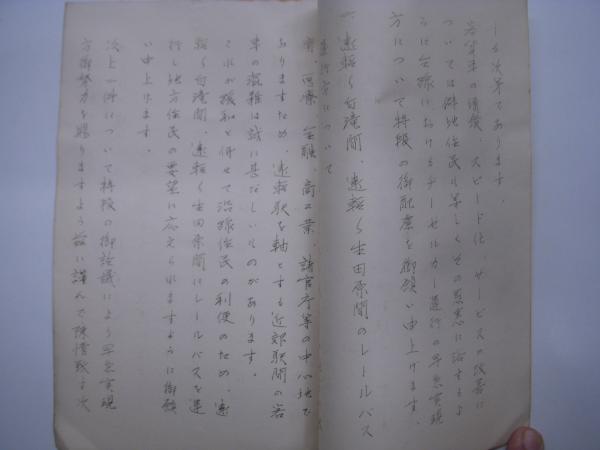 る次第であります。
客貨車の増発、スピード化、サービスの改善に
ついては僻地住民も等しくその恩恵に浴するよ
うに全線におけるヂーゼルカー運行の早急実現
方について特段の御配慮を御願い申上げます。
一、遠軽〜白滝間、遠軽〜生田原間のレールバス
運行方について
育、医療、金融、商工業、諸官庁等の中心地で
ありますため、遠軽駅を軸とする近郊駅間の客
車の混雑は誠に甚だしいものがあります。
これが緩和と併せて沿線住民の利便のため、遠
軽〜白滝間、遠軽〜生田原間にレールバスを運
行し地方住民の要望に応えられますように御願
い申上げます。
次上一件について特段の御詮議により早急実現
方御努力を賜りますよう茲に謹んで陳情致す次